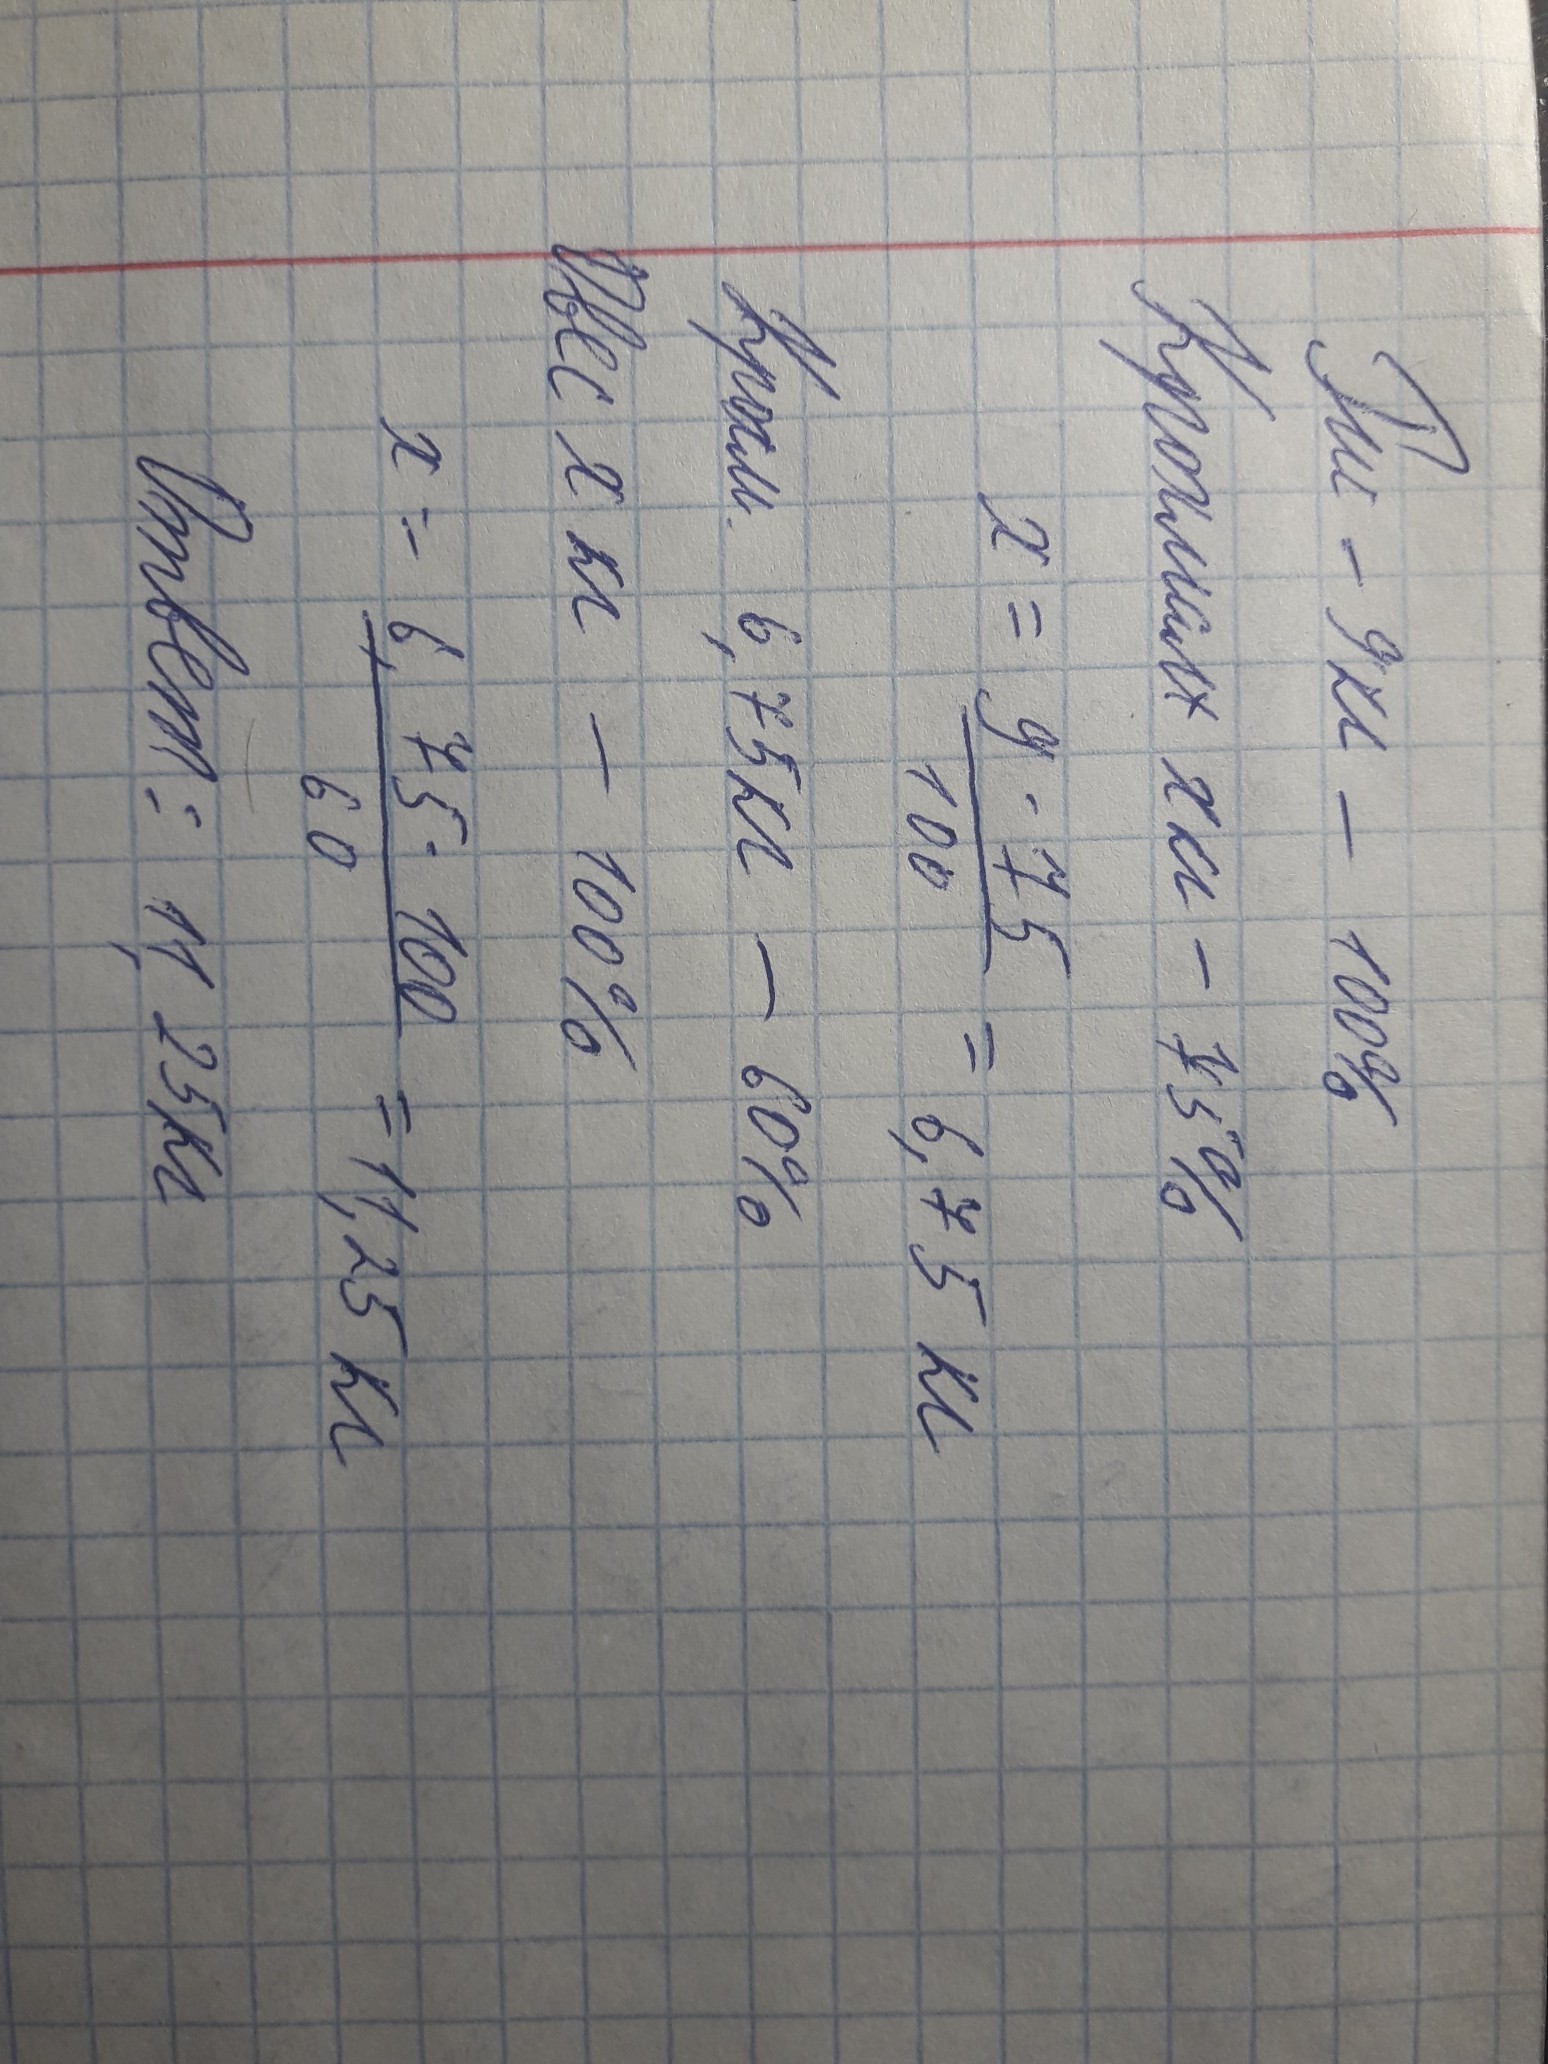 Рис - 9кг - 100%
Крахмал х кг - 75%
x = 9 · 75 / 100 = 6,75 кг
Крахм. 6,75кг - 60%
Овес х кг - 100%
x = 6,75 · 100 / 60 = 11,25 кг
Ответ: 11,25кг